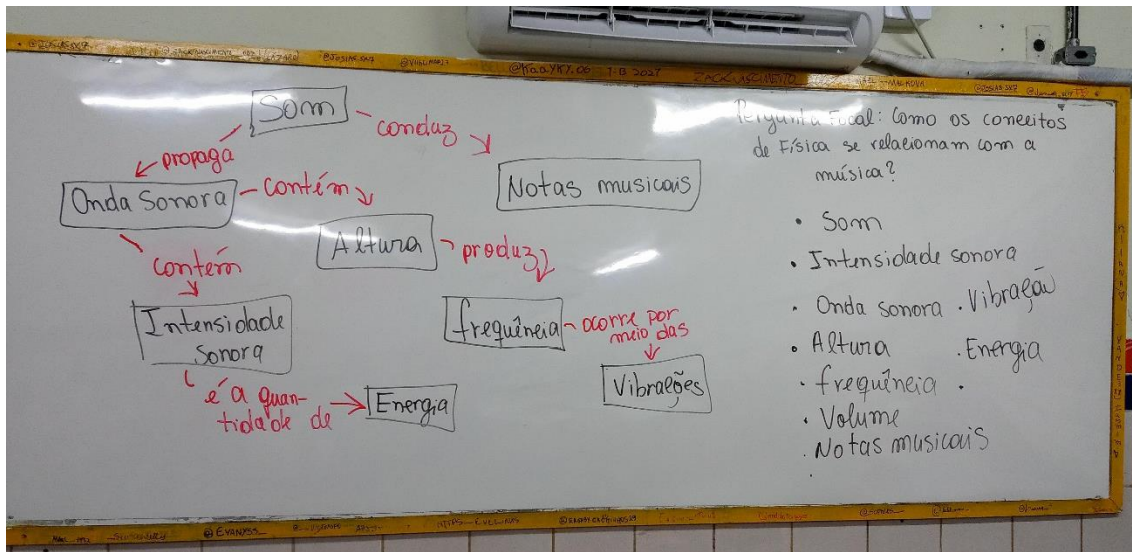 @Kaayky.06 1-B 2027
ZACK NASCIMENTO
Som
conduz
propaga
Onda Sonora
contém
Notas musicais
Altura
produz
contém
Intensidade
sonora
frequência
ocorre por
meio das
Vibrações
é a quan-
tidade de
Energia
Pergunta Focal: Como os conceitos
de Física se relacionam com a
música?
• Som
• Intensidade sonora
• Onda sonora . Vibração
• Altura . Energia
• frequência .
• Volume
. Notas musicais
.
@EVANASS